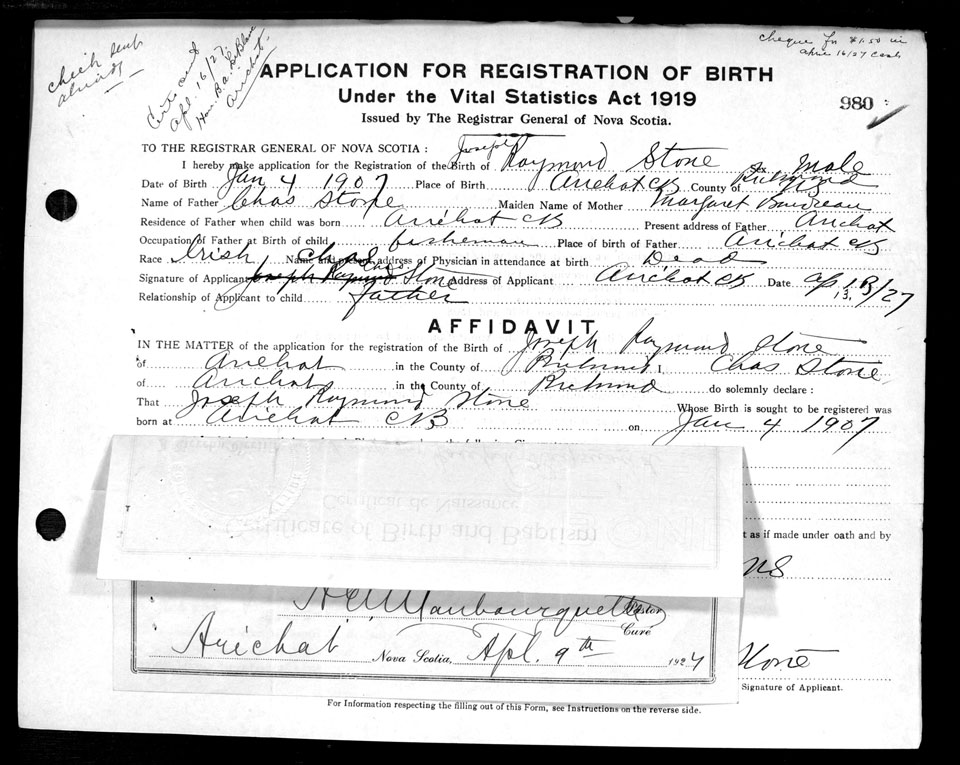 Check sent
already
Cert. sent
Apl. 16/27
Hon. B. A. LeBlanc
Arichat.
cheque for $1.50 in
April 16/27 Cash
APPLICATION FOR REGISTRATION OF BIRTH
Under the Vital Statistics Act 1919
980
Issued by The Registrar General of Nova Scotia.
TO THE REGISTRAR GENERAL OF NOVA SCOTIA :
I hereby make application for the Registration of the Birth of Joseph Raymond Stone Sex Male
Date of Birth Jan 4 1907 Place of Birth Arichat CB County of Richmond NS
Name of Father Chas Stone Maiden Name of Mother Margaret Boudreau
Residence of Father when child was born Arichat CB Present address of Father Arichat
Occupation of Father at Birth of child fisherman Place of birth of Father Arichat CB
Race Irish Name and present address of Physician in attendance at birth Dead
Signature of Applicant Joseph Raymond Chas Stone Address of Applicant Arichat CB Date Ap 13/27
13.
Relationship of Applicant to child father
AFFIDAVIT
IN THE MATTER of the application for the registration of the Birth of Joseph Raymond Stone
of Arichat in the County of Richmond I, Chas Stone
of Arichat in the County of Richmond do solemnly declare :
That Joseph Raymond Stone Whose Birth is sought to be registered was
born at Arichat CB on Jan 4 1907
Certificat de Naissance
Certificate of Birth and Baptism
t as if made under oath and by
NS
Pastor
Curé
Arichat Nova Scotia, Apl. 9th 1927
Stone
Signature of Applicant.
For Information respecting the filling out of this Form, see Instructions on the reverse side.